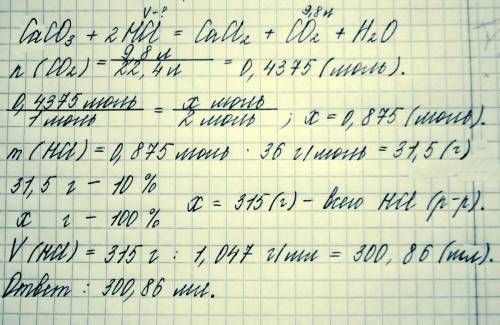 V-? 9,8 л
CaCO₃ + 2HCl = CaCl₂ + CO₂ + H₂O
n (CO₂) = 9,8 л / 22,4 л = 0,4375 (моль).
0,4375 моль / 1 моль = x моль / 2 моль ; x = 0,875 (моль).
m (HCl) = 0,875 моль · 36 г/моль = 31,5 (г)
31,5 г - 10 %
x г - 100 % x = 315 (г) - всего HCl (р-р).
V (HCl) = 315 г : 1,047 г/мл = 300,86 (мл).
Ответ : 300,86 мл.